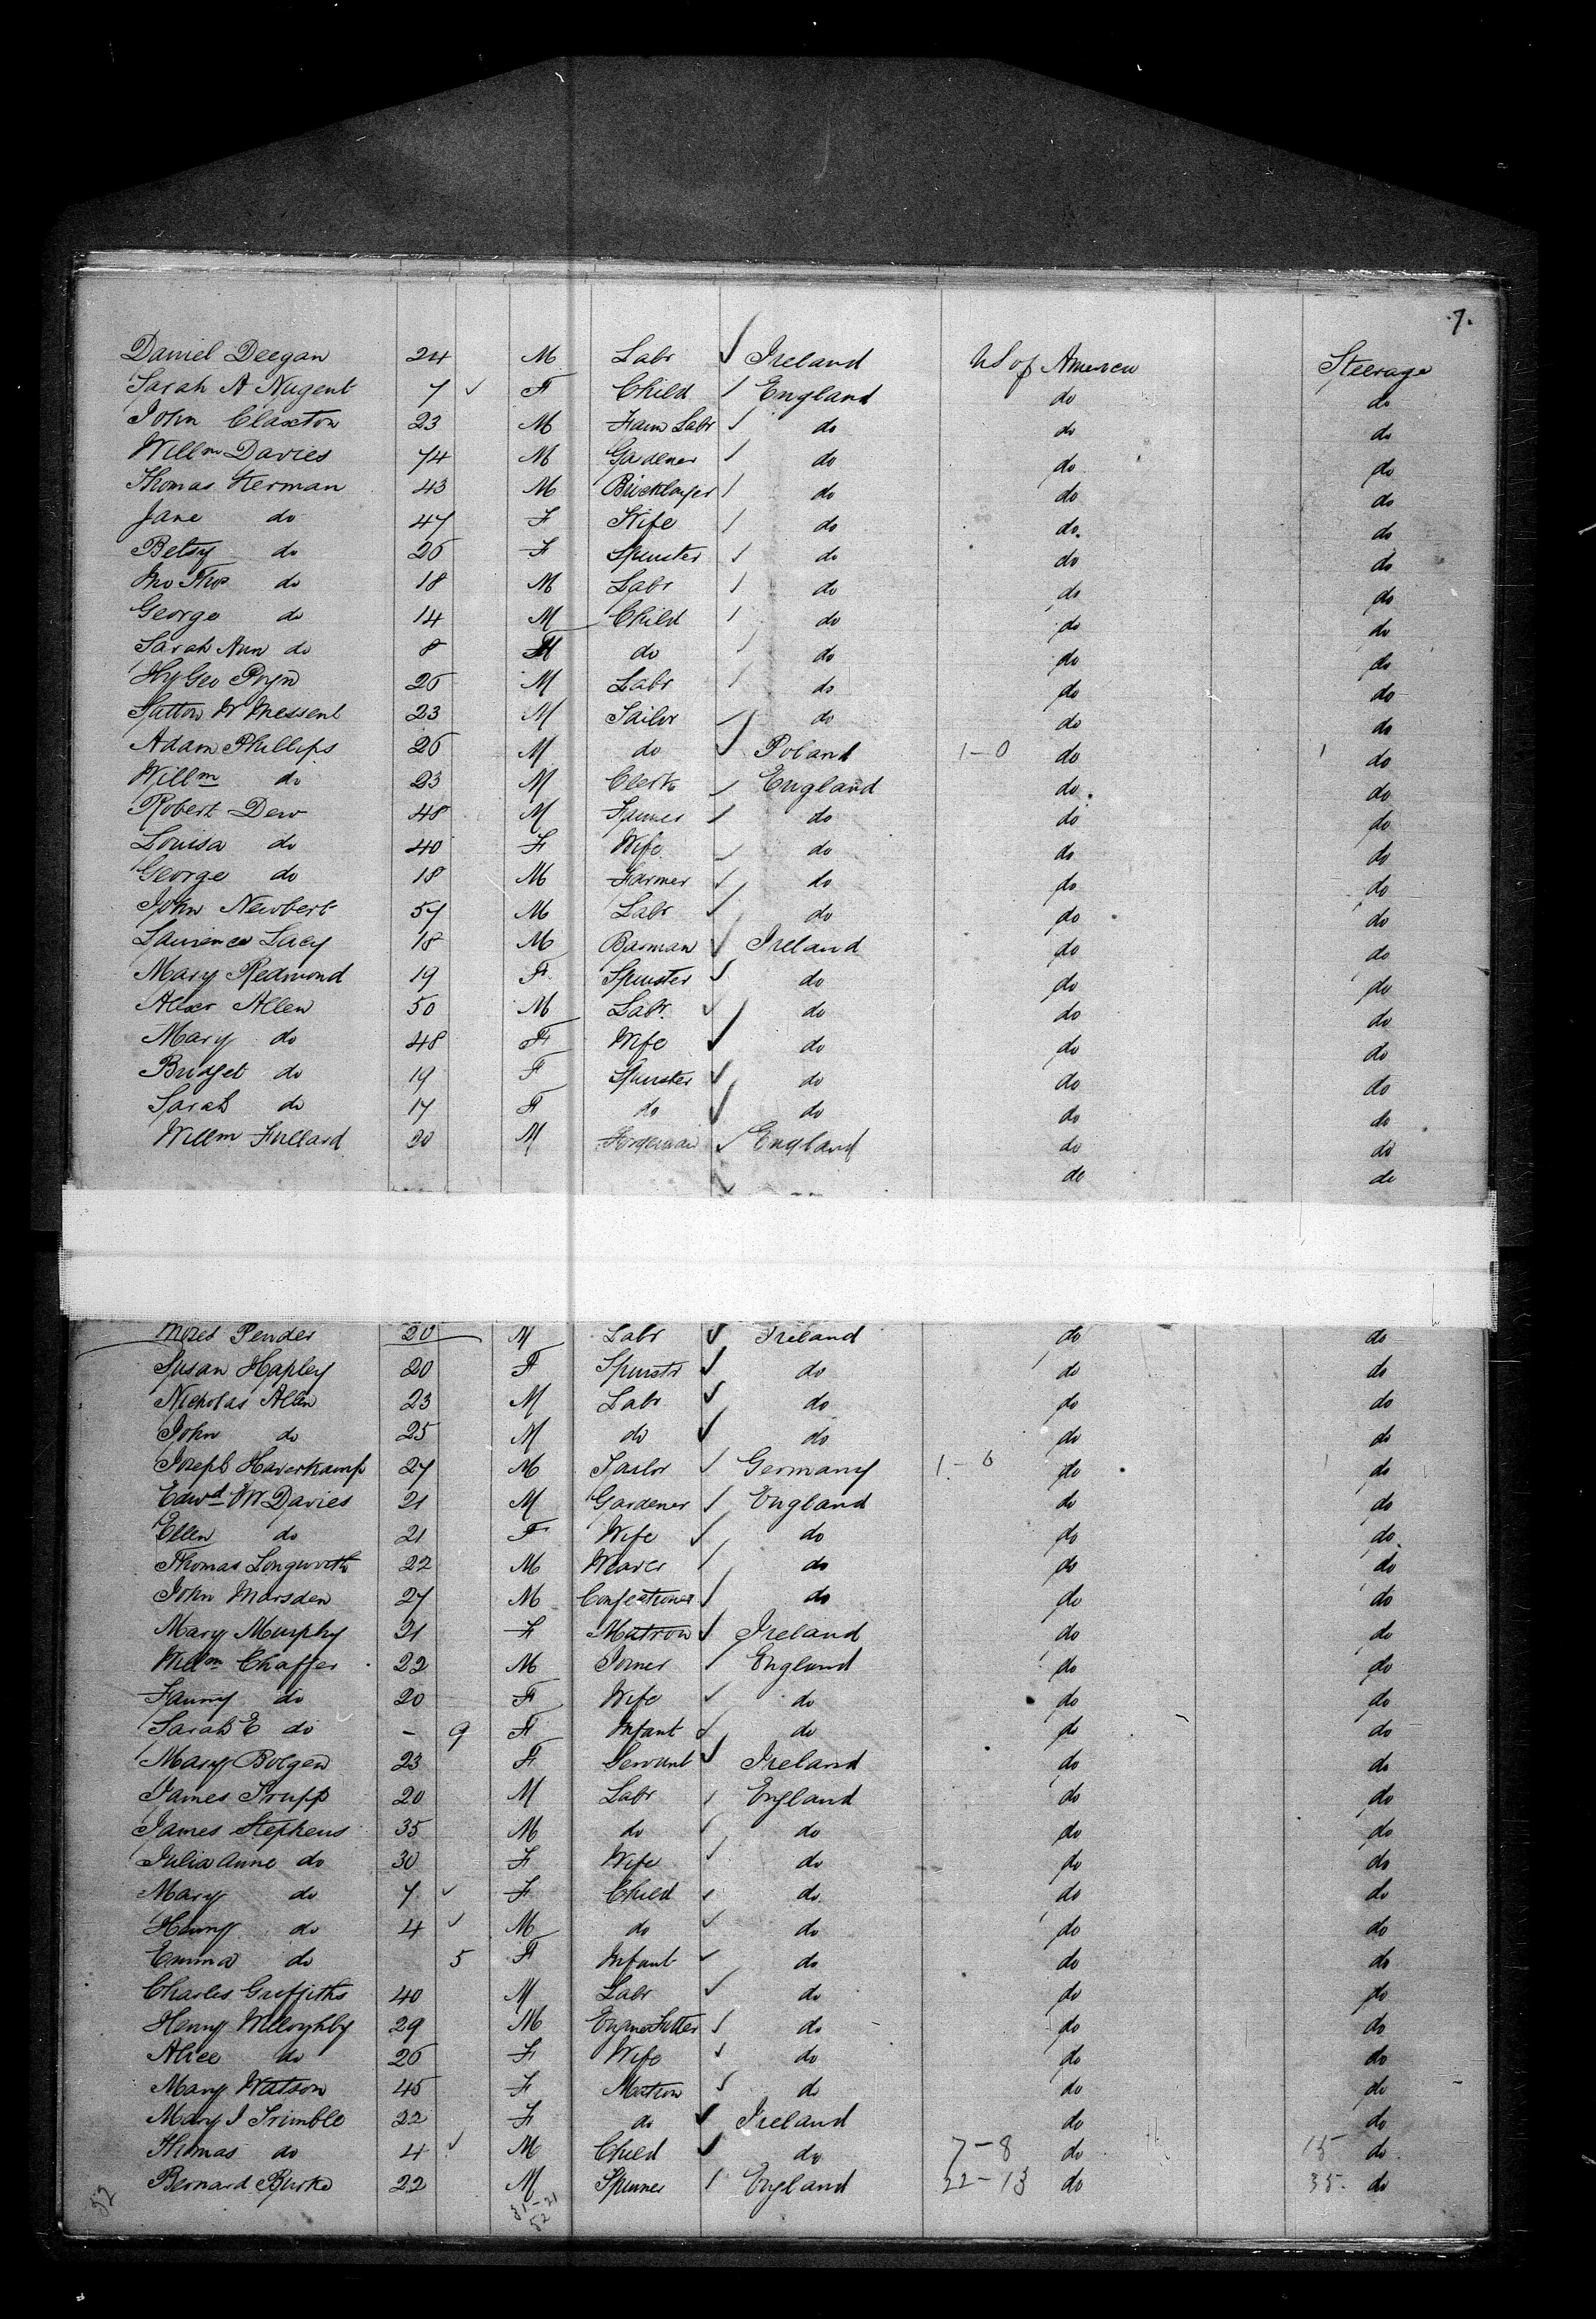 7.
Daniel Deegan 24 M Labr Ireland US of America Steerage
Sarah A Nugent 7 F Child England do do
John Claxton 23 M Farm Labr do do do
Willm Davies 74 M Gardener do do do
Thomas Herman 43 M Bricklayer do do do
Jane do 47 F Wife do do do
Betsy do 26 F Spinster do do do
Jno Thos do 18 M Labr do do do
George do 14 M Child do do do
Sarah Ann do 8 F do do do do
Hy Geo 26 M Labr do do do
Sutton W Messent 23 M Sailor do do do
Adam Phillips 26 M do Poland 1-0 do 1 do
Willm do 23 M Clerk England do do
Robert Dew 48 M Farmer do do do
Louisa do 40 F Wife do do do
George do 18 M Farmer do do do
John Newbert 57 M Labr do do do
Laurence Lacy 18 M Barman Ireland do do
Mary Redmond 19 F Spinster do do do
Alexr Allen 50 M Labr do do do
Mary do 48 F Wife do do do
Bridget do 19 F Spinster do do do
Sarah do 17 F do do do do
Willm Fullard 20 M Forgeman England do do
do do
Moses Pender 20 M Labr Ireland do do
Susan Hapley 20 F Spinstr do do do
Nicholas Allen 23 M Labr do do do
John do 25 M do do do do
Joseph Haverkamp 27 M Tailor Germany 1-0 do 1 do
Edwd W Davies 21 M Gardener England do do
Ellen do 21 F Wife do do do
Thomas Longworth 22 M Weaver do do do
John Marsden 27 M Confectioner do do do
Mary Murphy 21 F Matron Ireland do do
Willm Chaffer 22 M Joiner England do do
Fanny do 20 F Wife do do do
Sarah E do - 9 F Infant do do do
Mary Bolgen 23 F Servant Ireland do do
James Trupp 20 M Labr England do do
James Stephens 35 M do do do do
Julia Anne do 30 F Wife do do do
Mary do 7 F Child do do do
Henry do 4 M do do do do
Emma do 5 F Infant do do do
Charles Griffiths 40 M Labr do do do
Henry Willoughby 29 M Engine Fitter do do do
Alice do 26 F Wife do do do
Mary Watson 45 F Matron do do do
Mary J Trimble 22 F do Ireland do do
Thomas do 4 M Child do 7-8 do 15 do
Bernard Burke 22 M Spinner England 22-13 do 35 do
52 31-21
52